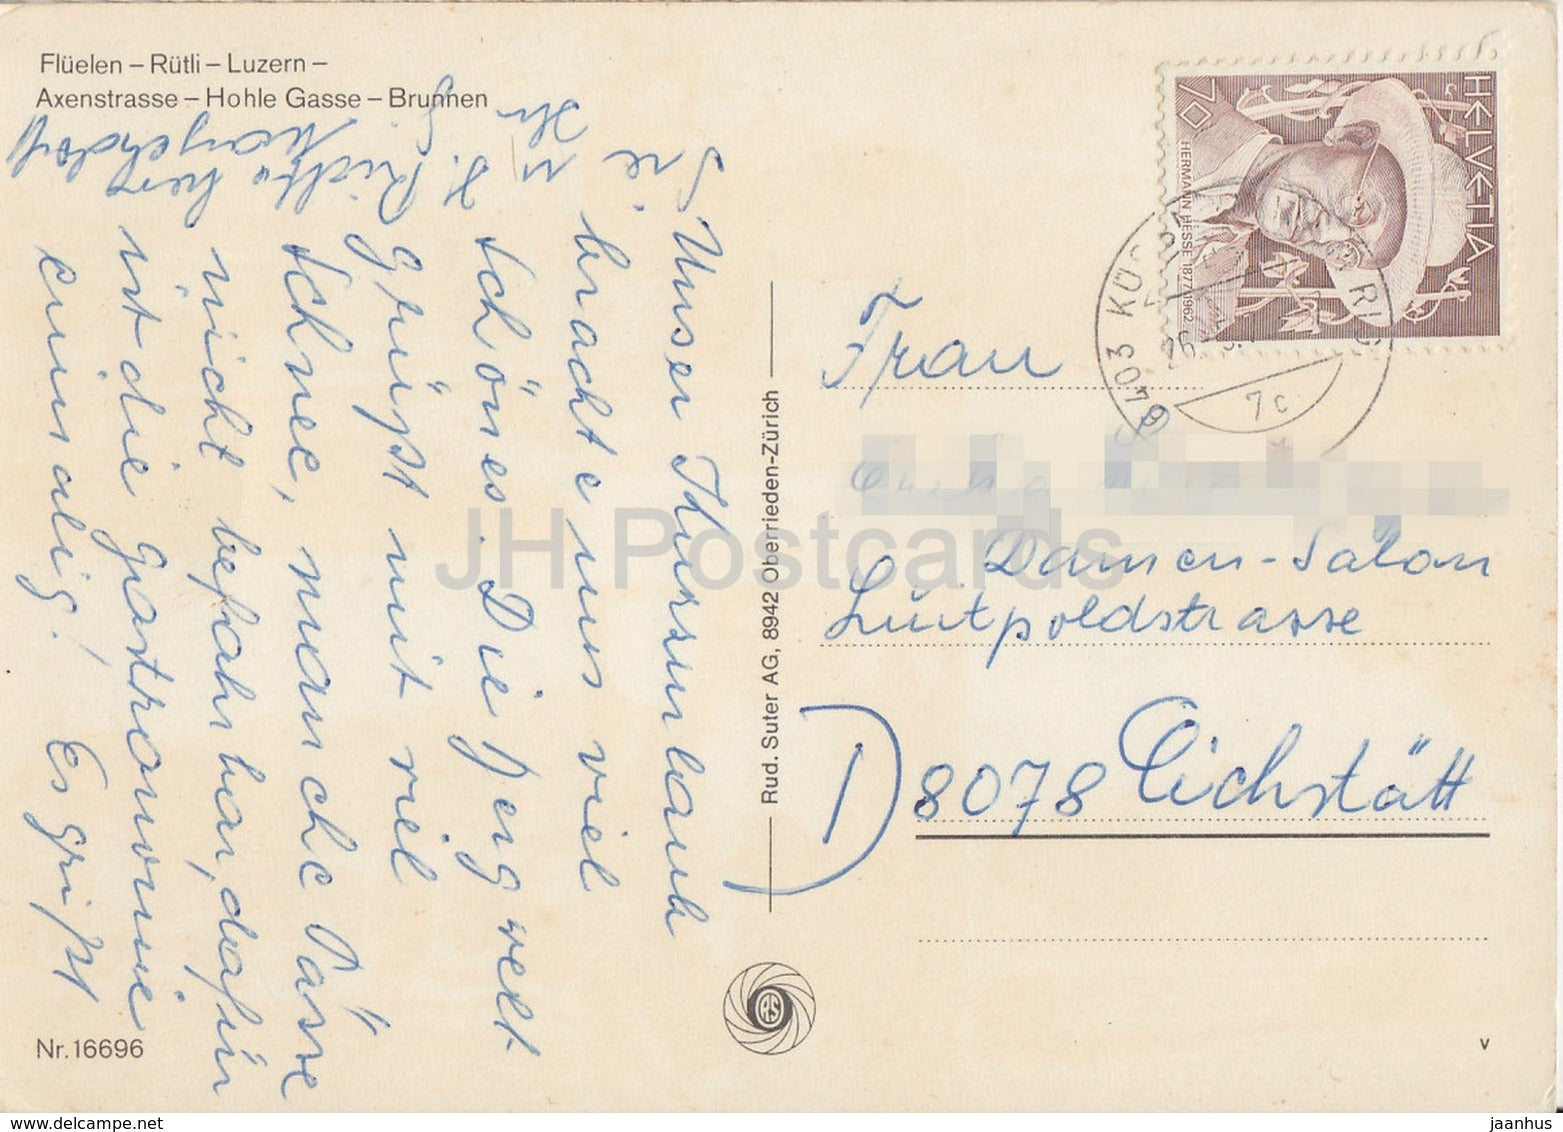 Flüelen – Rütli – Luzern –
Axenstrasse – Hohle Gasse – Brunnen
Unser Kurzurlaub
brachte uns viel
Schönes. Die Bergwelt
grüßt mit viel
Schnee, manche Pässe
nicht befahrbar, dafür
ist die Gastronomie
einmalig! Es grüßt
Sie
Ihr
Nr. 16696
Rud. Suter AG, 8942 Oberrieden-Zürich
RS
HELVETIA
70
HERMANN HESSE 1877-1962
6403 KÜSS
RIGI
7c
Frau
Damen-Salon
Luitpoldstrasse
D 8078 Eichstätt
v
JH Postcards
jaanhus